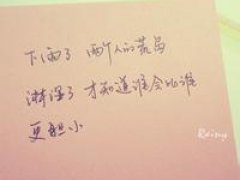 下雨了 两个人的荒岛
淋湿了 才知道谁会比谁
更胆小